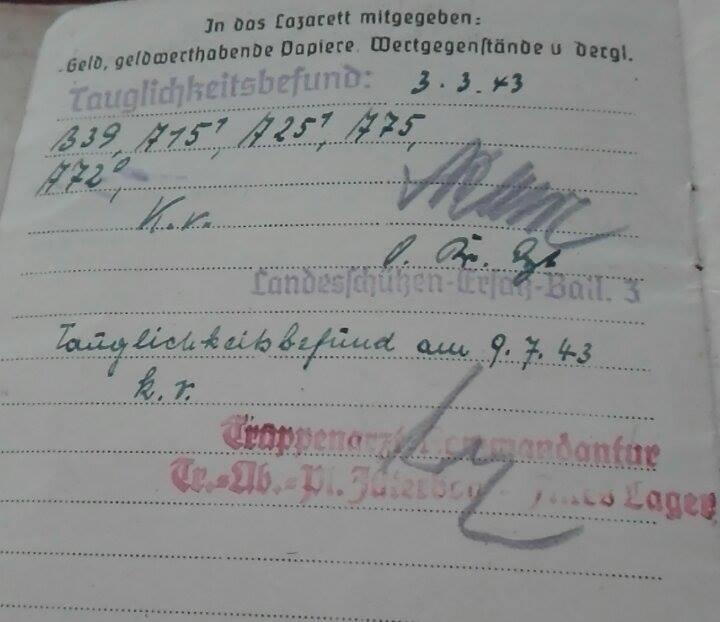 In das Lazarett mitgegeben:
Geld, geldwerthabende Papiere, Wertgegenstände u dergl.
Tauglichkeitsbefund: 3.3.43
B39, A15¹, A25¹, A75,
A72⁰,
K.v.
Landesschützen-Ersatz-Batl. 3
Tauglichkeitsbefund am 9.7.43
k.v.
Truppenarzt Kommandantur
Tr.-Üb.-Pl. Jüterbog - Lager